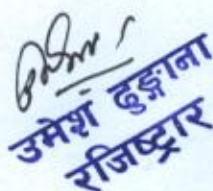 उमेश ढुङ्गाना
रजिष्ट्रार